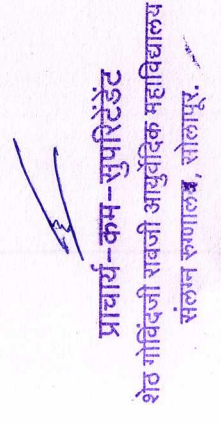 प्राचार्य-कम-सुपरिटेंडेंट
शेठ गोविंदजी रावजी आयुर्वेदिक महाविद्यालय
संलग्न रुग्णालय, सोलापूर.